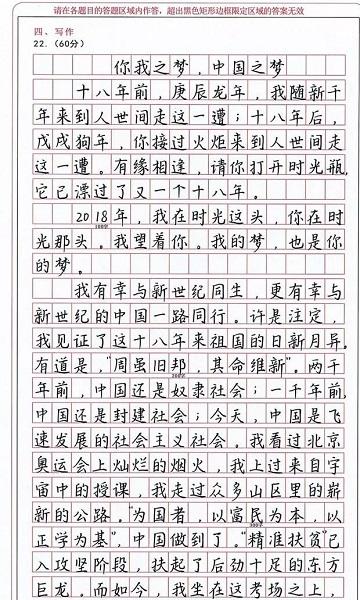 请在各题目的答题区域内作答，超出黑色矩形边框限定区域的答案无效
四、写作
22.（60分）
你我之梦，中国之梦
十八年前，庚辰龙年，我随新千
年来到人世间走这一遭；十八年后，
戊戌狗年，你接过火炬来到人世间走
这一遭。有缘相逢，请你打开时光瓶，
它已漂过了又一个十八年。
2018年，我在时光这头，你在时
100字
光那头。我望着你。我的梦，也是你
的梦。
我有幸与新世纪同生，更有幸与
新世纪的中国一路同行。许是注定，
我见证了这十八年来祖国的日新月异。
有道是，“周虽旧邦，其命维新”。两千
年前，中国还是奴隶社会；一千年前，
中国还是封建社会；今天，中国是飞
速发展的社会主义社会。我看过北京
奥运会上灿烂的烟火，我上过来自宇
宙中的授课，我走过众多山区里的崭
新的公路。“为国者，以富民为本，以
300字
正学为基”，中国做到了。“精准扶贫”已
入攻坚阶段，扶起了后劲十足的东方
巨龙。而如今，我坐在这考场之上，